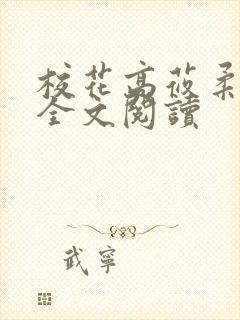 校花高莜柔
全文閱讀
武寧